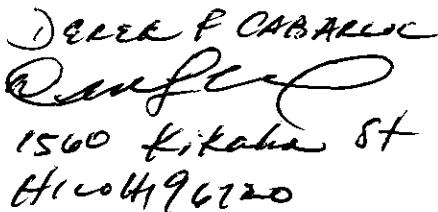 DEREK F CABARLOC
1560 Kikaha St
HILO HI 96720